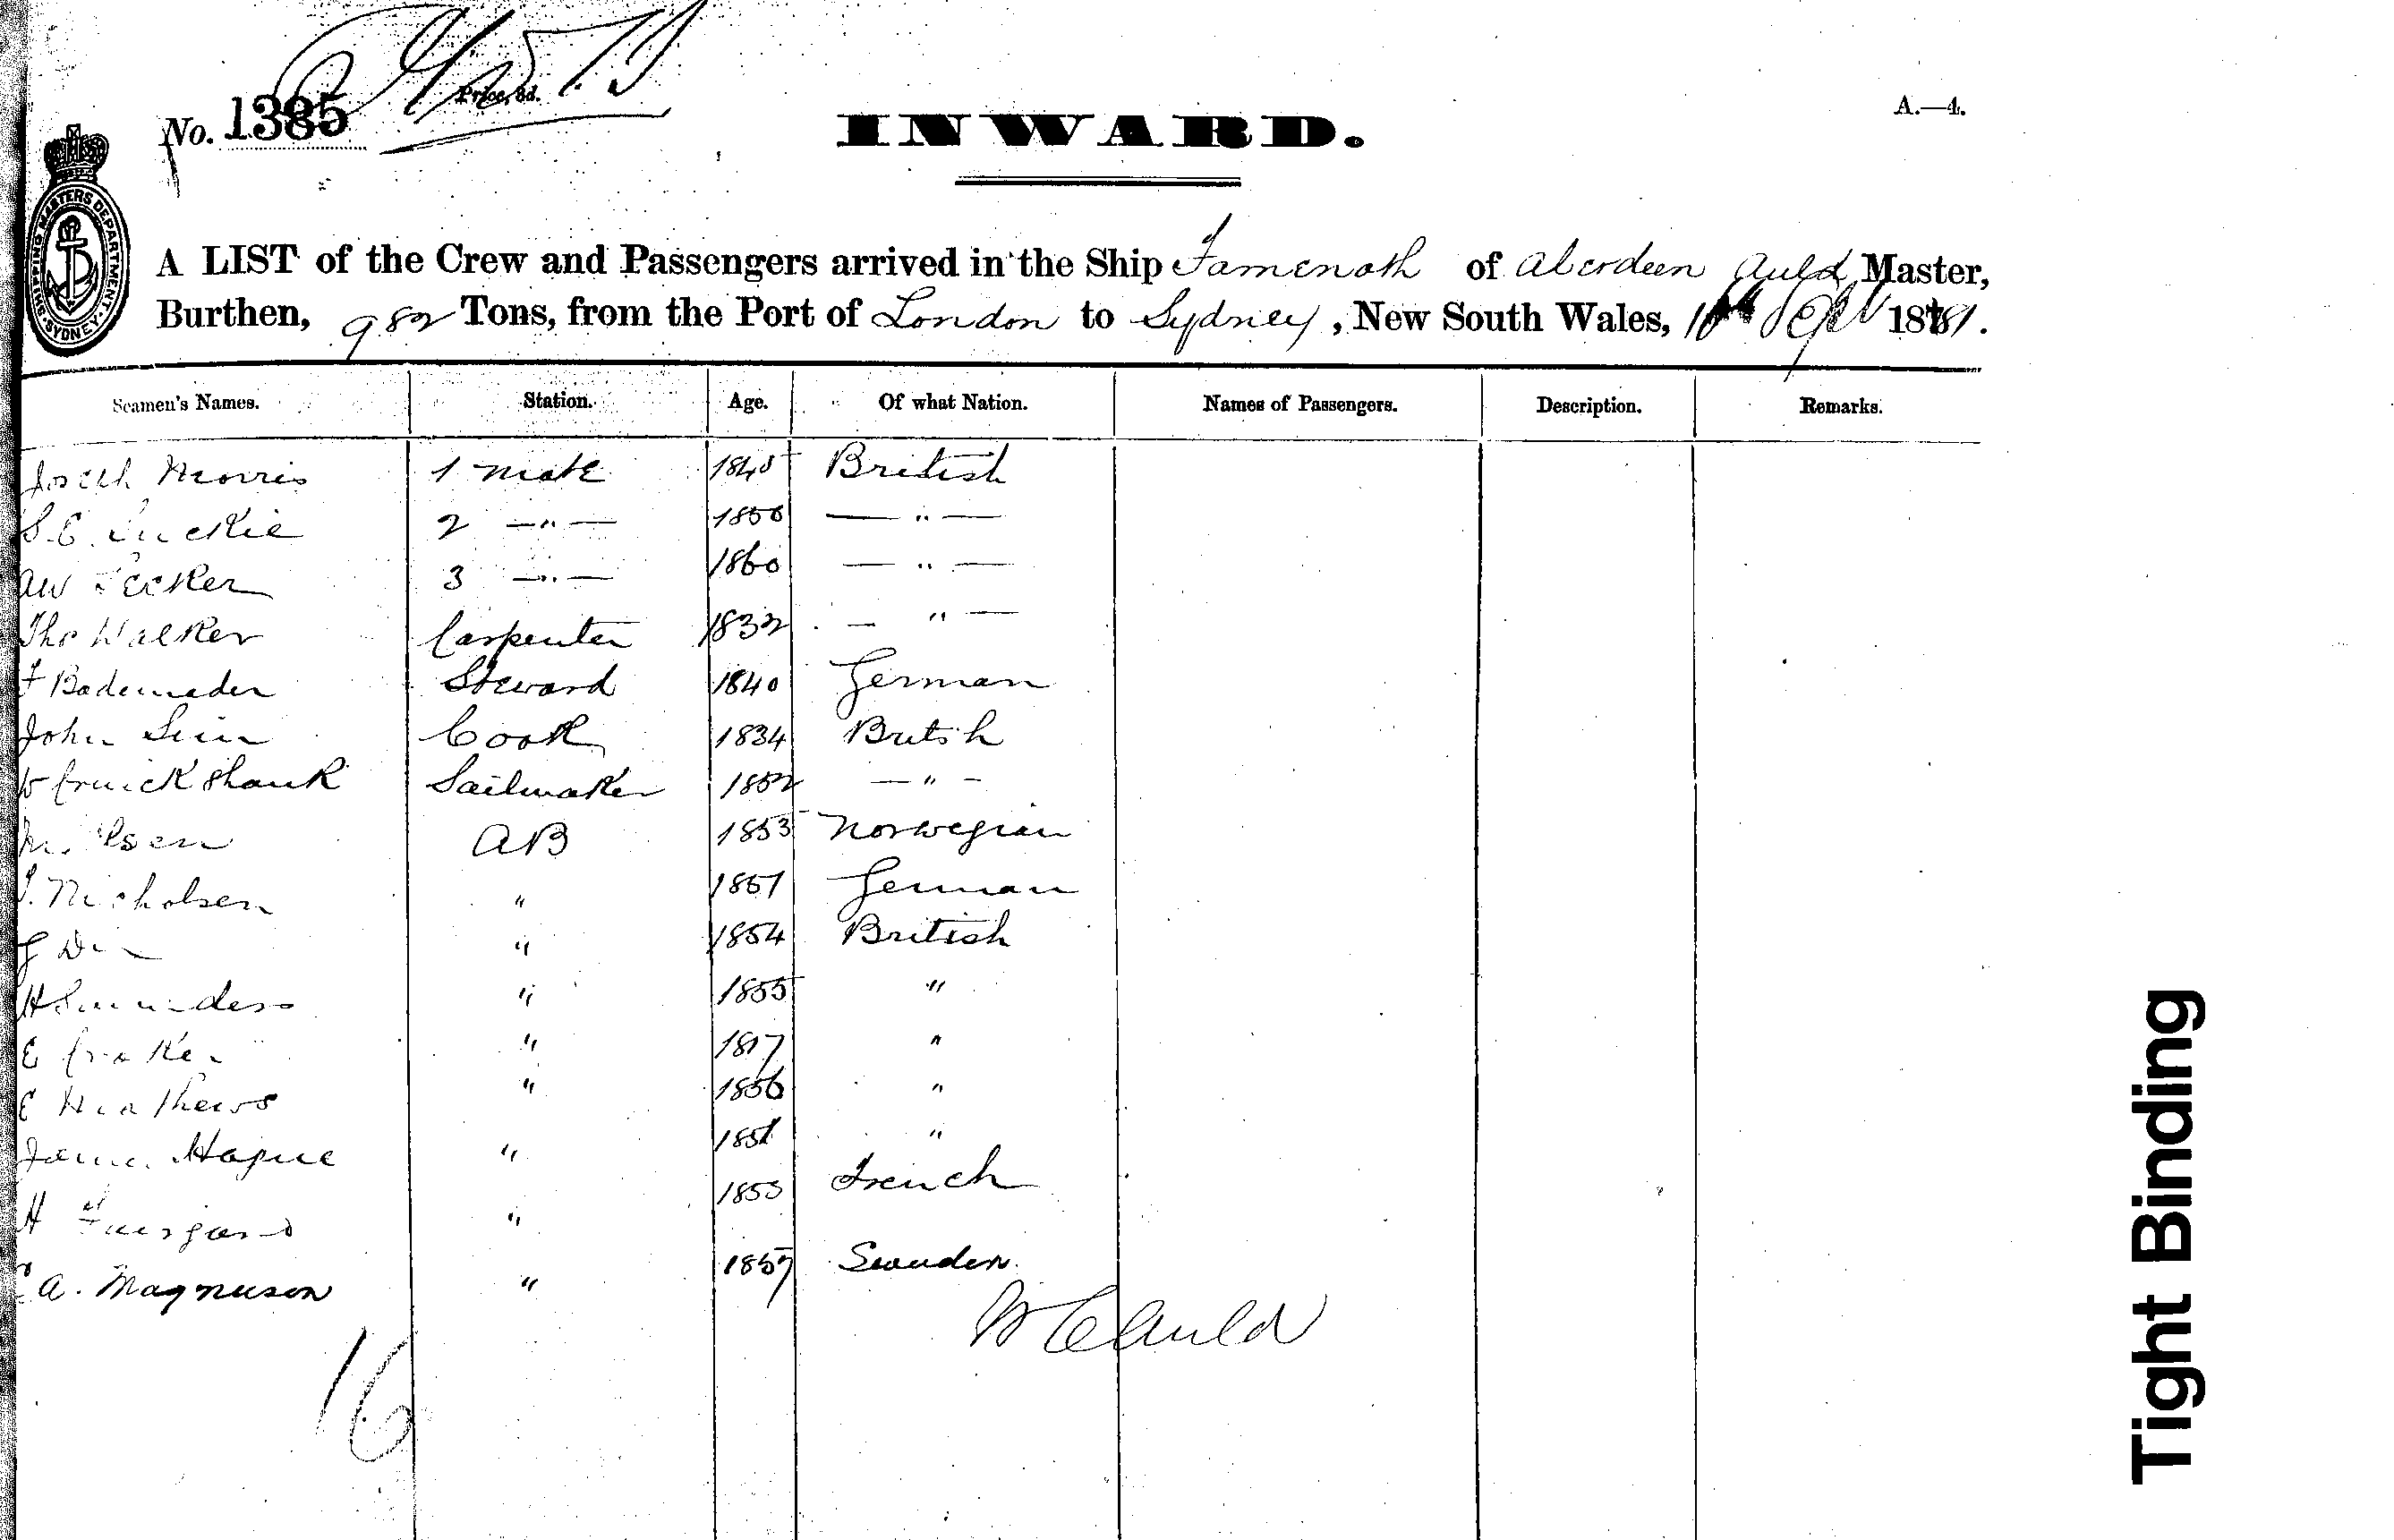 No. 1385
Price, 3d.
A.—4.
INWARD.
SHIPPING MASTERS DEPARTMENT. SYDNEY.
A LIST of the Crew and Passengers arrived in the Ship Tamenoth of Aberdeen Auld Master,
Burthen, 982 Tons, from the Port of London to Sydney, New South Wales, Sept 1881.
Seamen's Names. Station. Age. Of what Nation. Names of Passengers. Description. Remarks.
Joseph Morris 1 Mate 1845 British
S. E. Luckie 2 —"— 1850 —"—
AW Decker 3 —"— 1860 —"—
Tho Walker Carpenter 1832 —"—
F Steward 1840 German
John Sim Cook 1834 British
W Cruickshank Sailmaker 1852 —"—
AB 1853 Norwegian
Nicholsen " 1857 German
" 1854 British
H Saunders " 1855 "
E " "
E Matthews " 1856 "
James Hague " 1851 "
H " 1853 French
A. Magnuson " 1857 Sweden
W C Auld
16
Tight Binding